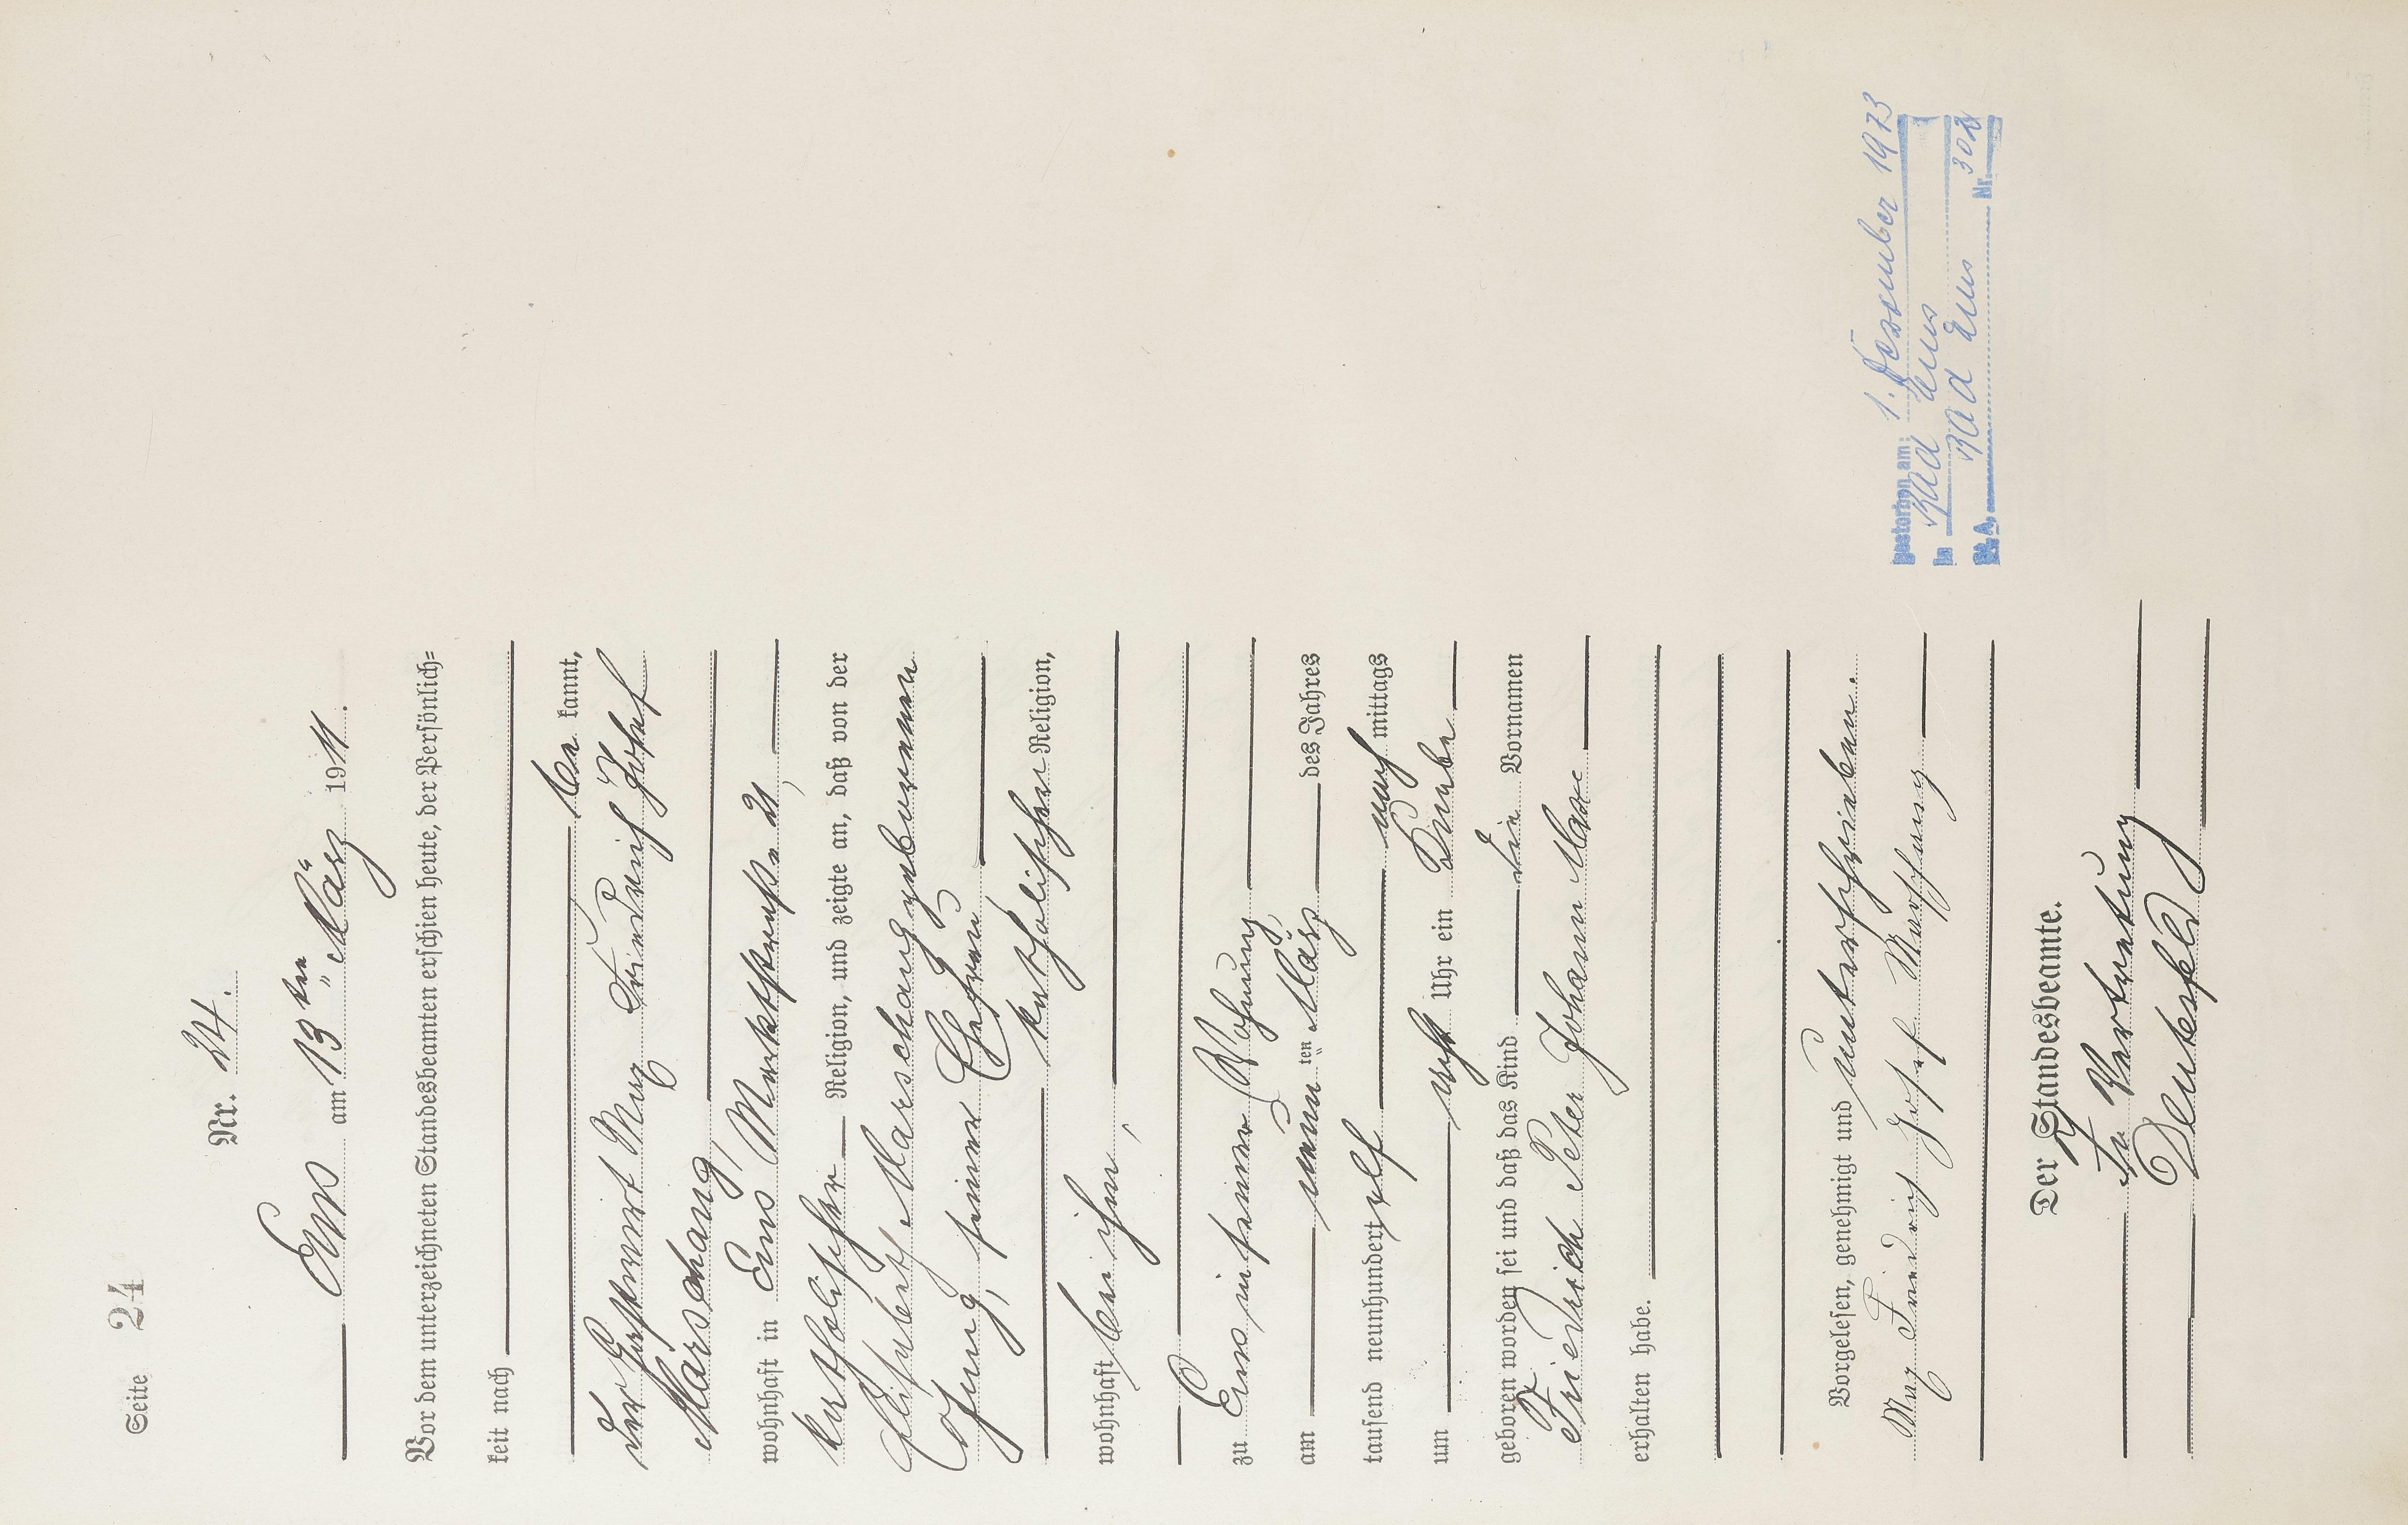 Seite 24
Nr. 24.
Ems am 13ten März 1911.
Vor dem unterzeichneten Standesbeamten erschien heute, der Persönlich=
keit nach
be kannt,
der Gastwirt Max Friedrich Josef
Marschang,
wohnhaft in Ems Marktstraße 21,
katholischer Religion, und zeigte an, daß von der
Elisabeth Marschang geborenen
seiner Ehefrau,
katholischer Religion,
wohnhaft bei ihm,
zu Ems in seiner Wohnung,
am neunten März des Jahres
tausend neunhundert elf nach mittags
um acht Uhr ein Knabe
geboren worden sei und daß das Kind die Vornamen
Friedrich Peter Johann Max
erhalten habe.
Vorgelesen, genehmigt und unterschrieben.
Max Friedrich Josef Marschang
Der Standesbeamte.
In Vertretung
gestorben am: 1. Dezember 1973
in Bad Ems
St. A. Bad Ems Nr. 302